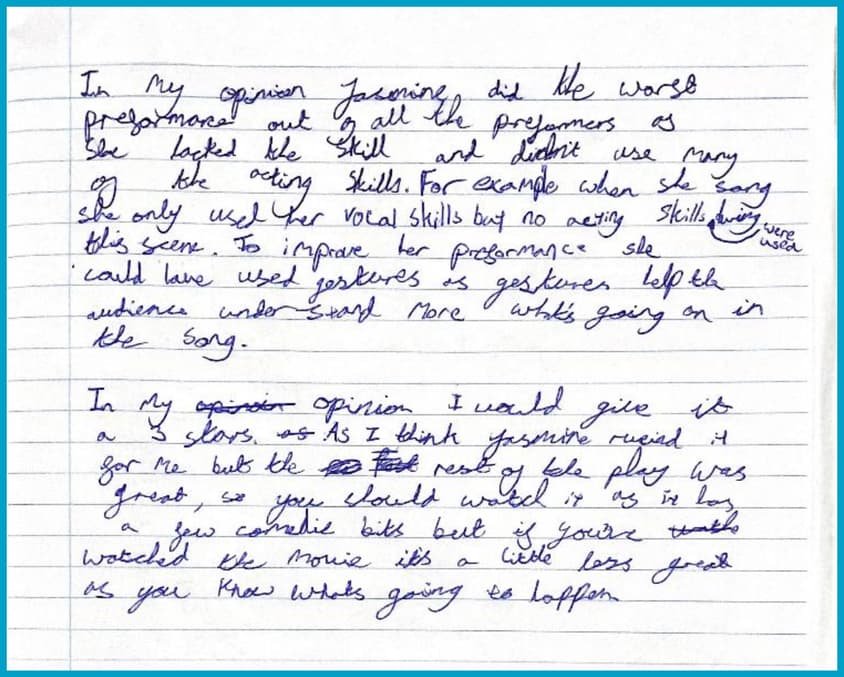 In My opinion Jasmine did the worst
preformance out of all the preformers as
She lacked the skill and didn't use many
of the acting skills. For example when she sang
she only used her vocal skills but no acting skills were used during
this scene. To improve her preformance she
could have used gestures as gestures help the
audience understand More what's going on in
the song.
In My opinion opinion I would give it
a 3 stars. as As I think yasmine rueind it
for Me but the rest of the play was
great, so you should watch it as it has
a few comedic bits but if you've
watched the movie it's a little less great
as you know whats going to happen